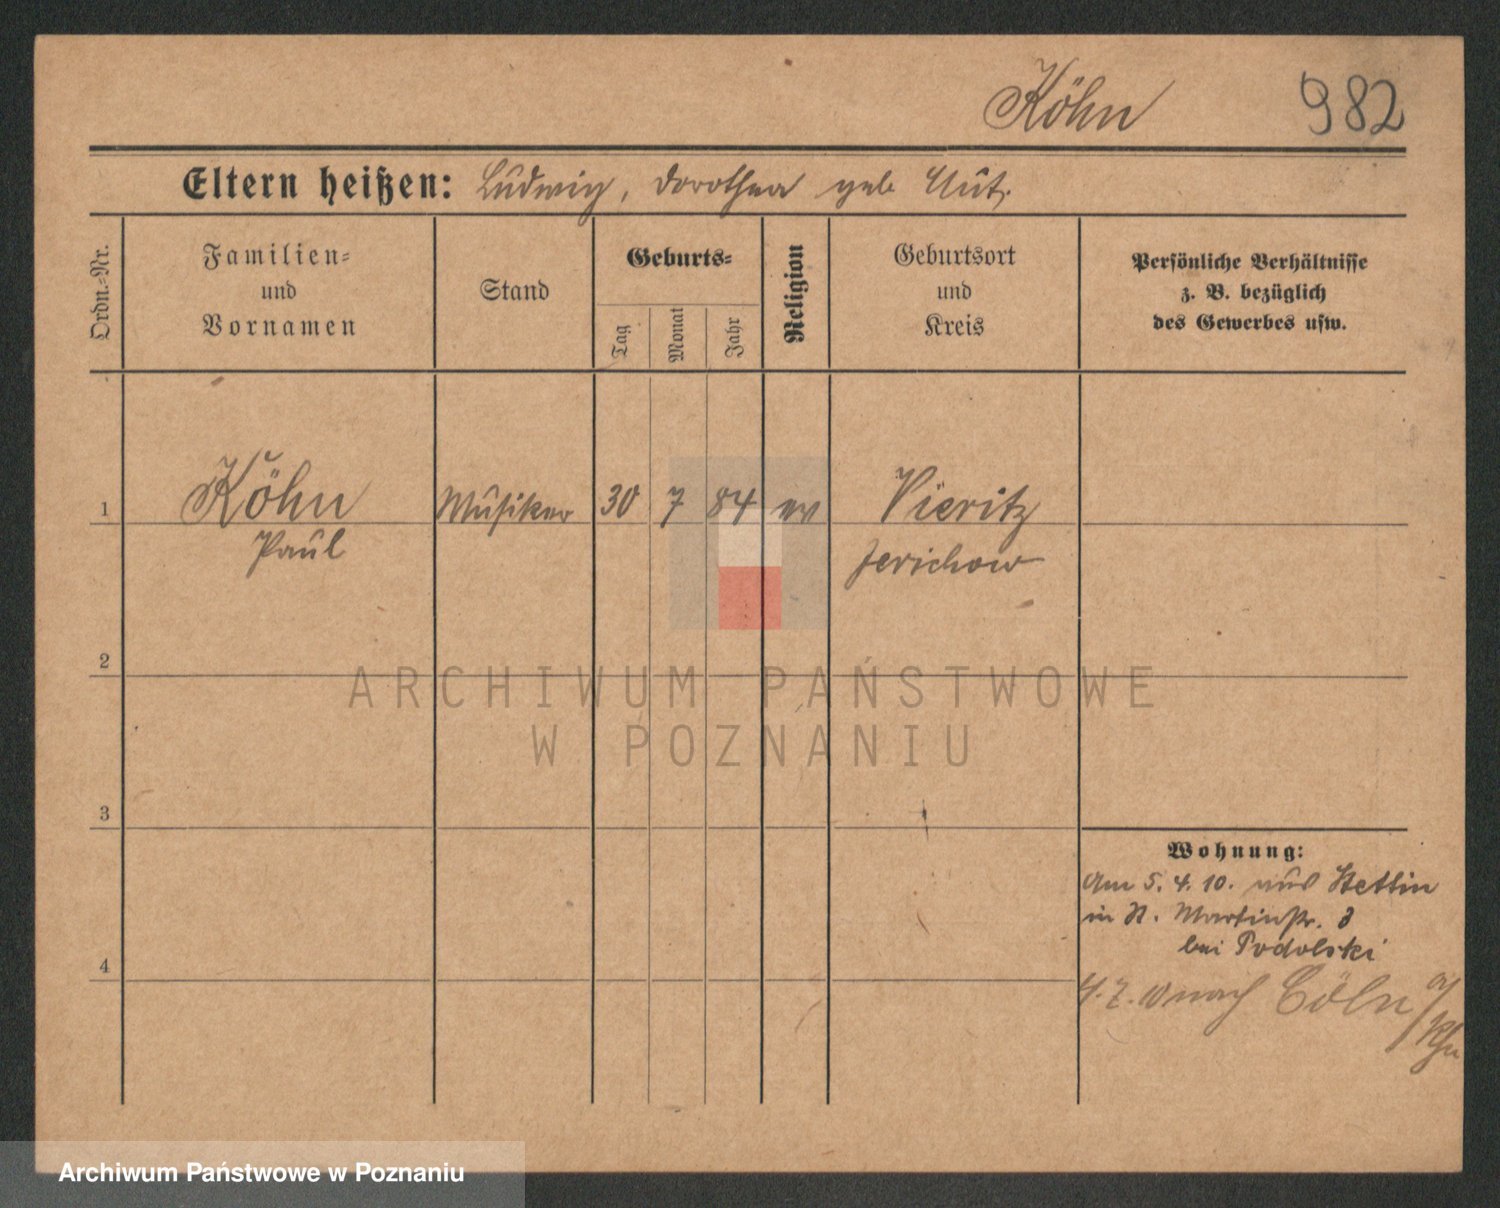 Köhn 982
Eltern heißen: Ludwig, Dorothea geb
Ordn.-Nr.
Familien-
und
Vornamen
Stand
Geburts-
Tag
Monat
Jahr
Religion
Geburtsort
und
Kreis
Persönliche Verhältnisse
z. B. bezüglich
des Gewerbes usw.
1 Köhn Musiker 30 7 84 ev Vieritz
Paul Jerichow
2
ARCHIWUM PAŃSTWOWE
W POZNANIU
3
Wohnung:
Am 5. 4. 10. aus Stettin
in St. Martinstr. 8
bei Podolski
4
4. 7. 10 nach Cöln a/
Rhn
Archiwum Państwowe w Poznaniu